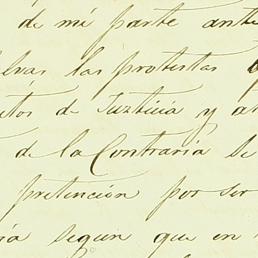 de mi parte ante
las protestas
de Justicia y
de la Contraria se
pretención por ser
segun que en